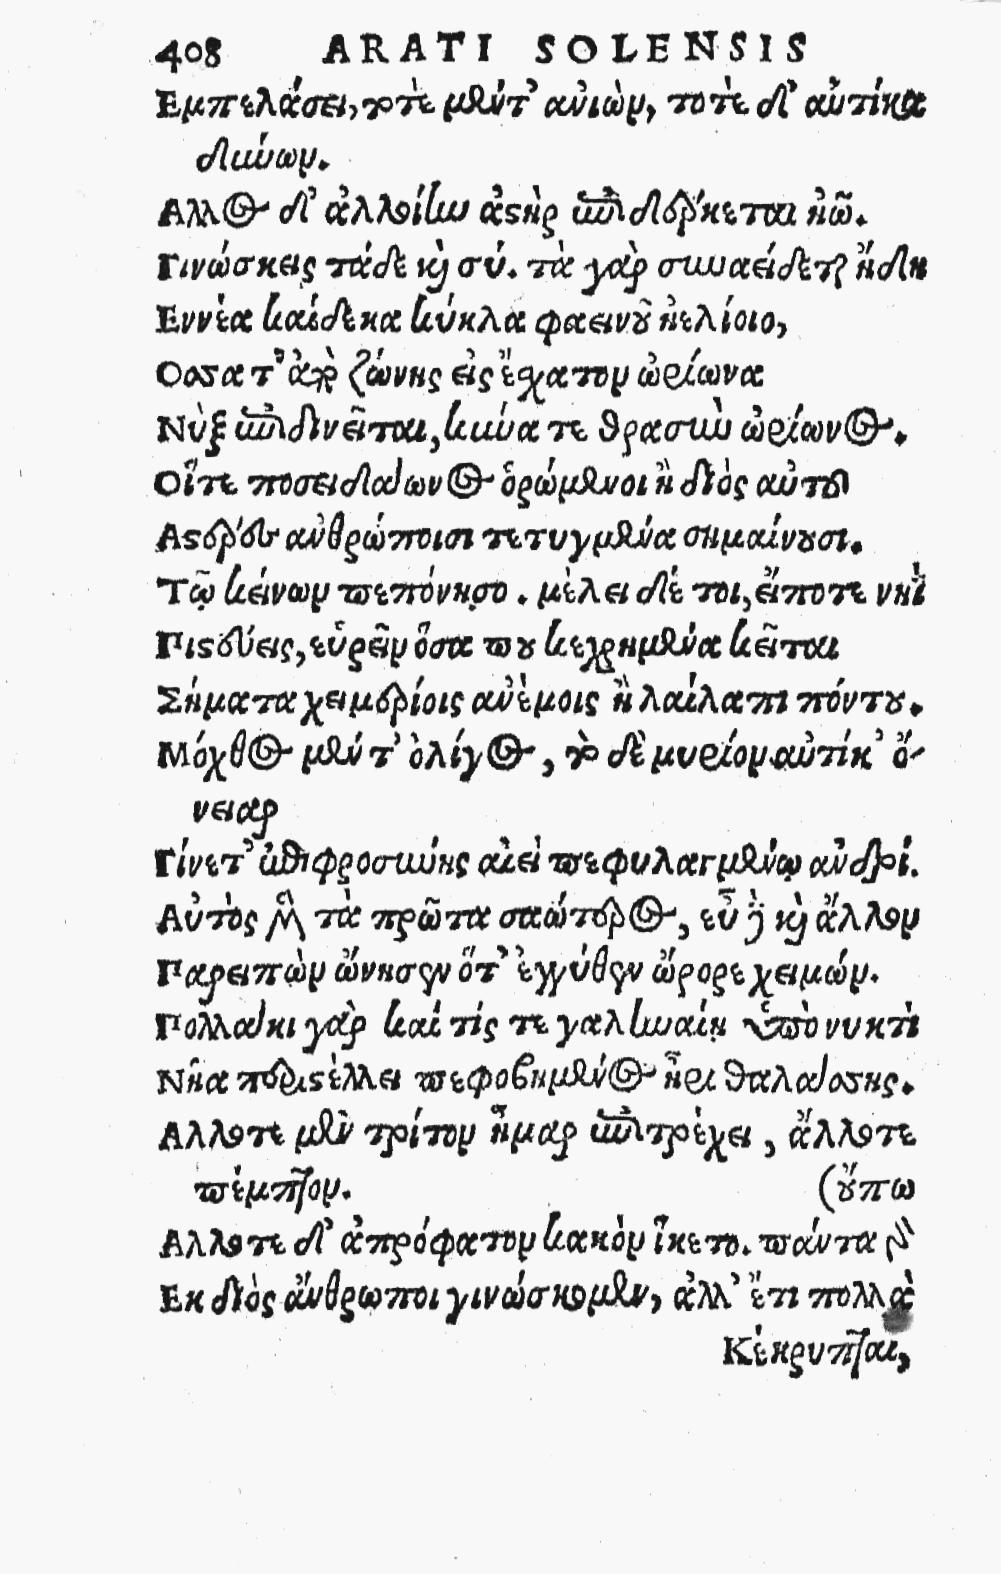 408 ARATI SOLENSIS
Εμπελάσει, τοτὲ μέν τ' ἀνιὼν, τοτὲ δ' αὐτίκα
δύνων.
Αλλος δ' ἀλλοίην ἀστὴρ ἐπιδέρκεται ἠῶ.
Γινώσκεις τάδε καὶ σύ. τὰ γὰρ συναείδεται ἤδη
Εννέα καίδεκα κύκλα φαεινοῦ ἠελίοιο,
Οσσα τ' ἀπὸ ζώνης εἰς ἔχατον ὠρίωνα
Νὺξ ἐπιδινεῖται, κύνα τε θρασὺν ὠρίωνος.
Οἵ τε ποσειδάωνος ὁρώμενοι ἢ διὸς αὐτοῦ
Αστέρες ἀνθρώποισι τετυγμένα σημαίνουσι.
Τῷ κείνων πεπόνησο. μέλει δέ τοι, εἴποτε νηῒ
Πιστεύεις, εὑρεῖν ὅσα που κεχρημένα κεῖται
Σήματα χειμερίοις ἀνέμοις ἢ λαίλαπι πόντου.
Μόχθος μέν τ' ὀλίγος, τὸ δὲ μυρίον αὐτίκ' ὄ-
νειαρ
Γίνετ' ἐπιφροσύνης αἰεὶ πεφυλαγμένῳ ἀνδρί.
Αὐτὸς μὲν τὰ πρῶτα σαώτερος, εὖ δὲ καὶ ἄλλον
Παρειπὼν ὤνησεν ὅτ' ἐγγύθεν ὤρορε χειμών.
Πολλάκι γὰρ καί τίς τε γαληναίῃ ὑπὸ νυκτὶ
Νῆα περιστέλλει πεφοβημένος ἦρι θαλάσσης.
Αλλοτε μὲν τρίτον ἦμαρ ἐπιτρέχει, ἄλλοτε
πέμπτον. (οὔπω
Αλλοτε δ' ἀπρόφατον κακὸν ἵκετο. πάντα γὰρ
Εκ διὸς ἄνθρωποι γινώσκομεν, ἀλλ' ἔτι πολλὰ
Κέκρυπται,